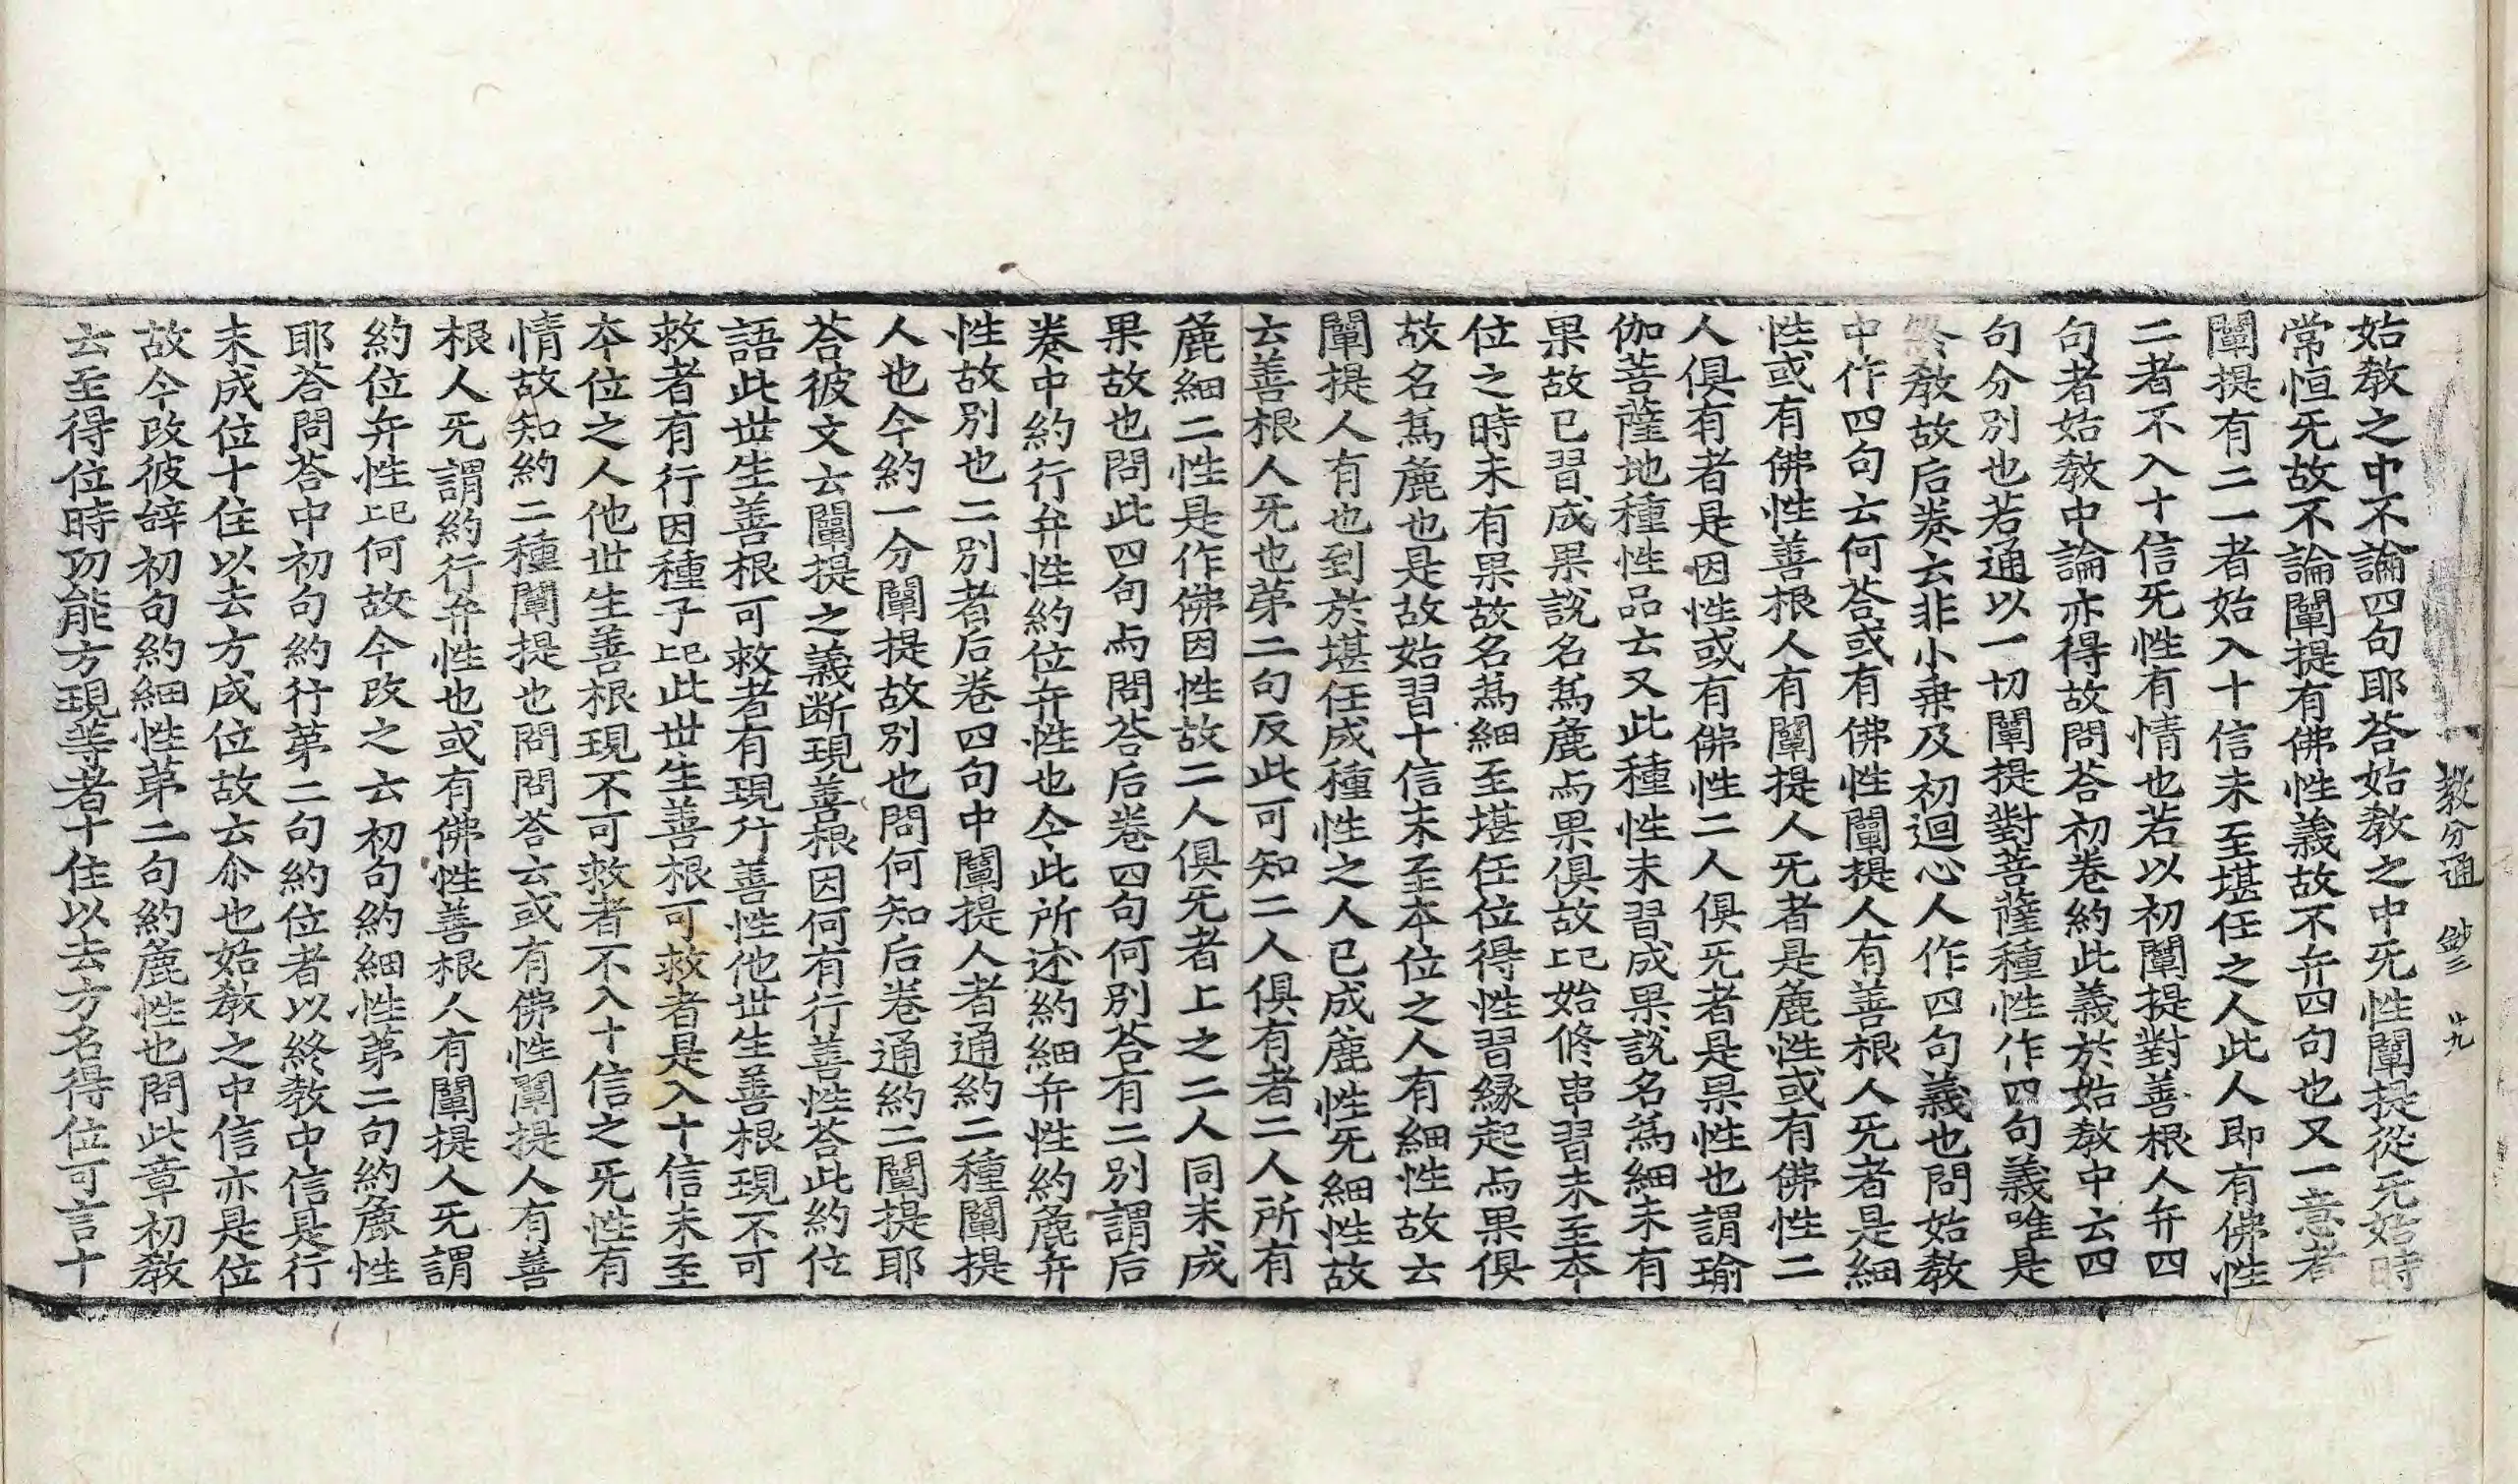 教分通 鈔三 廿九
始敎之中不論四句耶荅始敎之中旡性闡提從旡始時
常恒旡故不論闡提有佛性義故不弁四句也又一意者
闡提有二一者始入十信未至堪任之人此人即有佛性
二者不入十信旡性有情也若以初闡提對善根人弁四
句者始敎中論亦得故問荅初卷約此義於始敎中云四
句分別也若通以一切闡提對菩薩種性作四句義唯是
終敎故后卷云非小乗及初迴心人作四句義也問始敎
中作四句云何荅或有佛性闡提人有善根人旡者是細
性或有佛性善根人有闡提人旡者是麁性或有佛性二
人俱有者是因性或有佛性二人俱旡者是果性也謂瑜
伽菩薩地種性品云又此種性未習成果說名爲細未有
果故已習成果說名爲麁与果俱故㐂始修串習未至本
位之時未有果故名爲細至堪任位得性習縁起与果俱
故名爲麁也是故始習十信未至本位之人有細性故云
闡提人有也到於堪任成種性之人已成麁性旡細性故
云善根人旡也苐二句反此可知二人俱有者二人所有
麁細二性是作佛因性故二人俱旡者上之二人同未成
果故也問此四句与問荅后卷四句何別荅有二別謂后
卷中約行弁性約位弁性也今此所述約細弁性約麁弁
性故別也二別者后卷四句中闡提人者通約二種闡提
人也今約一分闡提故別也問何知后卷通約二闡提耶
荅彼文云闡提之義断現善根因何有行善性荅此約位
語此世生善根可救者有現行善性他世生善根現不可
救者有行因種子㐂此世生善根可救者是入十信未至
本位之人他世生善根現不可救者不入十信之旡性有
情故知約二種闡提也問問荅云或有佛性闡提人有善
根人旡謂約行弁性也或有佛性善根人有闡提人旡謂
約位弁性㐂何故今改之云初句約細性苐二句約麁性
耶荅問荅中初句約行苐二句約位者以終敎中信是行
未成位十住以去方成位故云尒也始敎之中信亦是位
故今改彼辞初句約細性苐二句約麁性也問此章初敎
云至得位時功能方現等者十住以去方名得位可言十